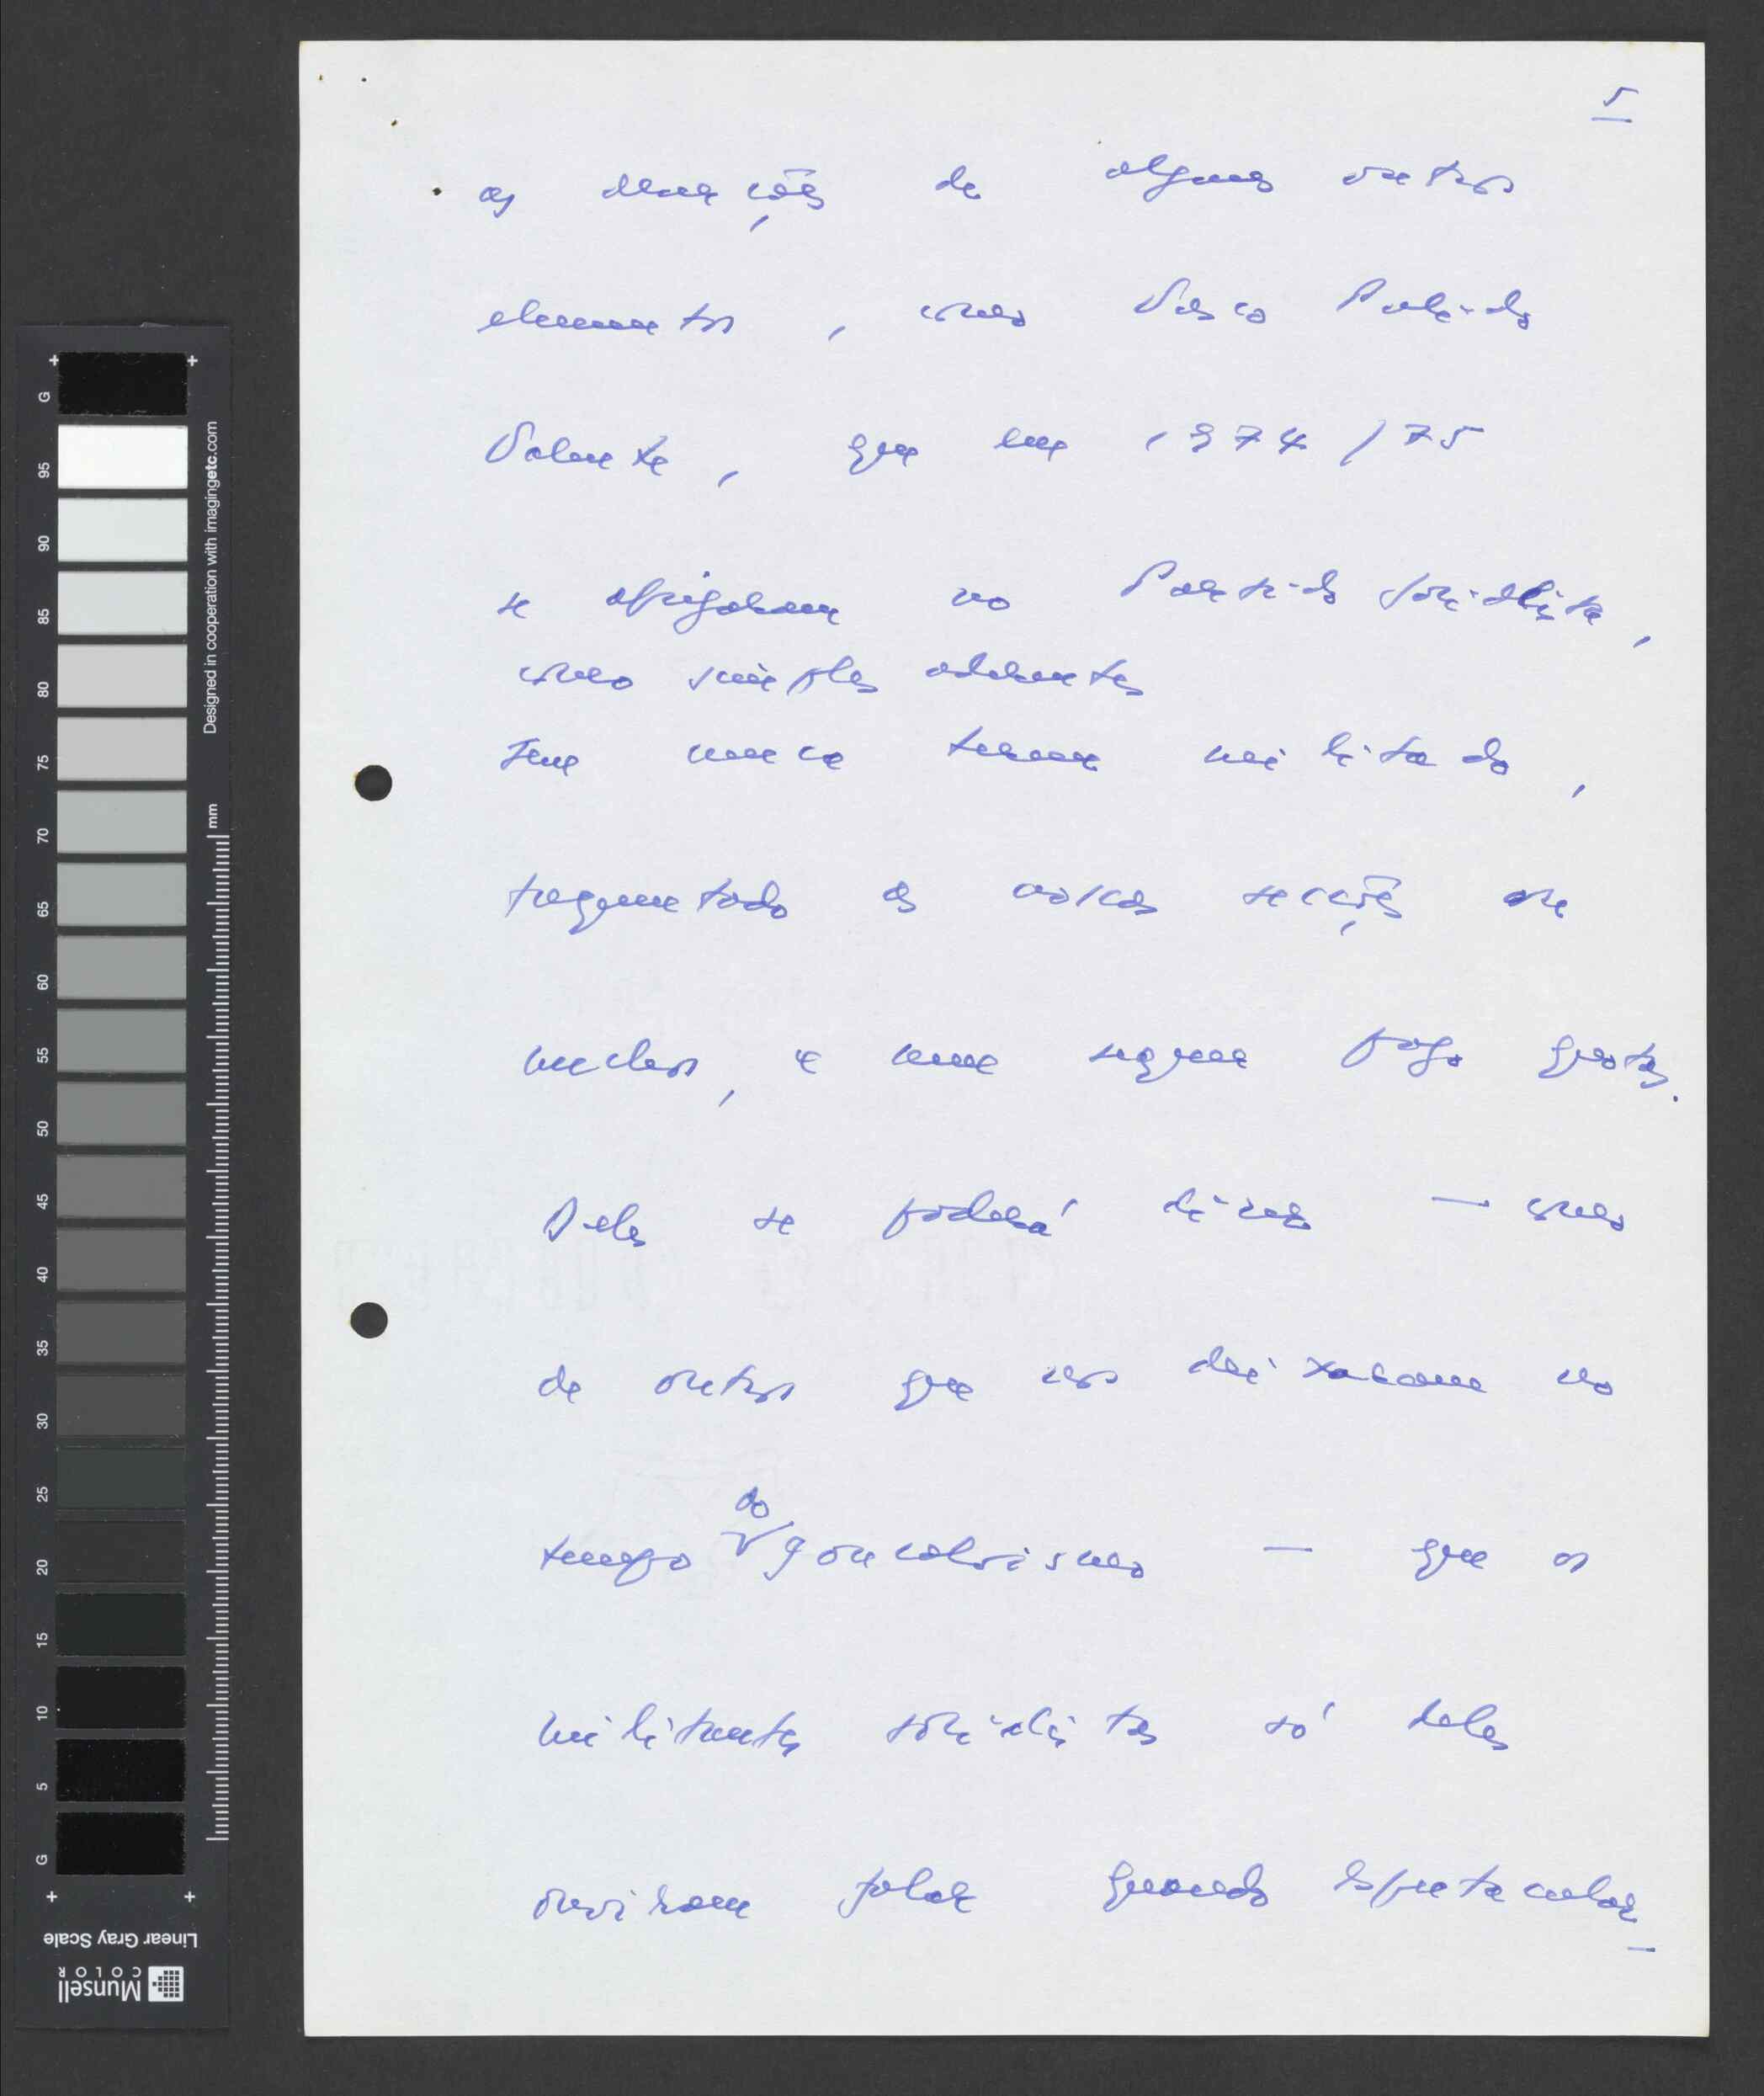 5
as deserções de alguns outros
elementos, como Vasco Pulido
Valente, que em 1974/75
se abrigaram no Partido Socialista,
como simples aderentes
sem nunca terem militado,
frequentado as nossas secções ou
núcleos, e nem sequer pago quotas.
Deles se poderá dizer — como
de outros que nos deixaram no
tempo do gonçalvismo — que os
militantes socialistas só deles
ouviram falar quando espectacular-
G
95
90
85
80
75
70
65
60
55
50
45
40
35
30
25
20
15
10
5
G
Designed in cooperation with imagingetc.com
mm
Linear Gray Scale
Munsell
COLOR